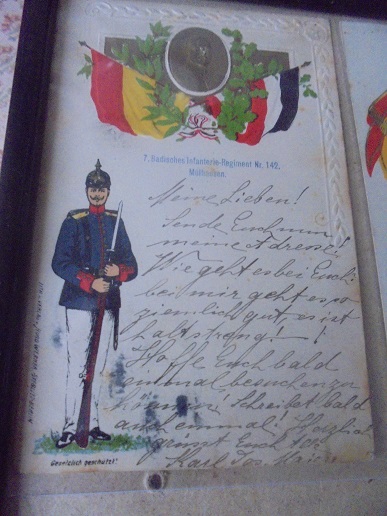 7. Badisches Infanterie-Regiment Nr. 142.
Mülhausen.
Meine Lieben!
Sende Euch nun
meine Adresse!
Wie geht es bei Euch
bei mir geht es so
ziemlich gut, es ist
halt streng!
Hoffe Euch bald
einmal besuchen zu
können! Schreibet bald
auch einmal! Herzlich
grüsst Euch
Karl Jos. Maier
Gesetzlich geschützt.